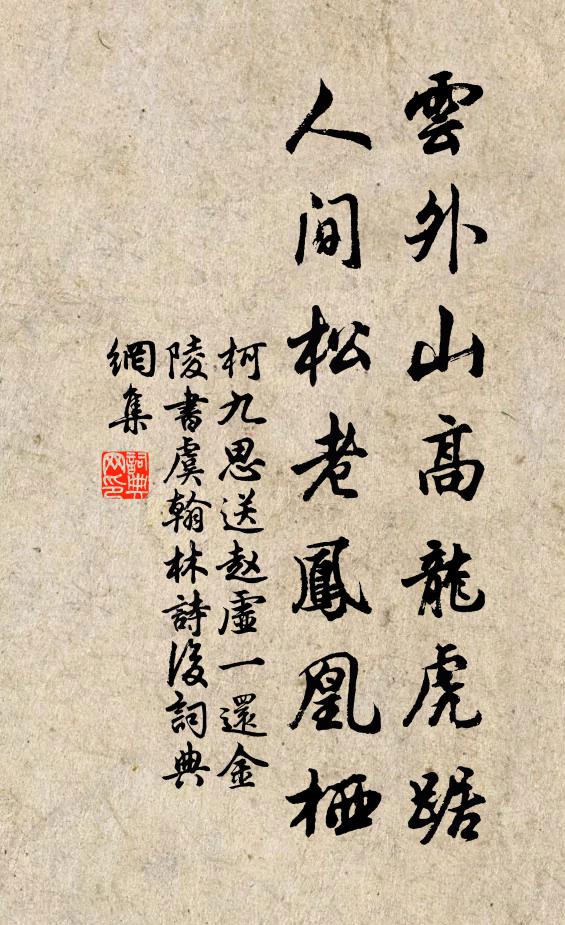 雲外山高龍虎踞
人间松老鳳凰栖
柯九思送赵虛一還金
陵書虞翰林詩後詞典
網集
詞典網印